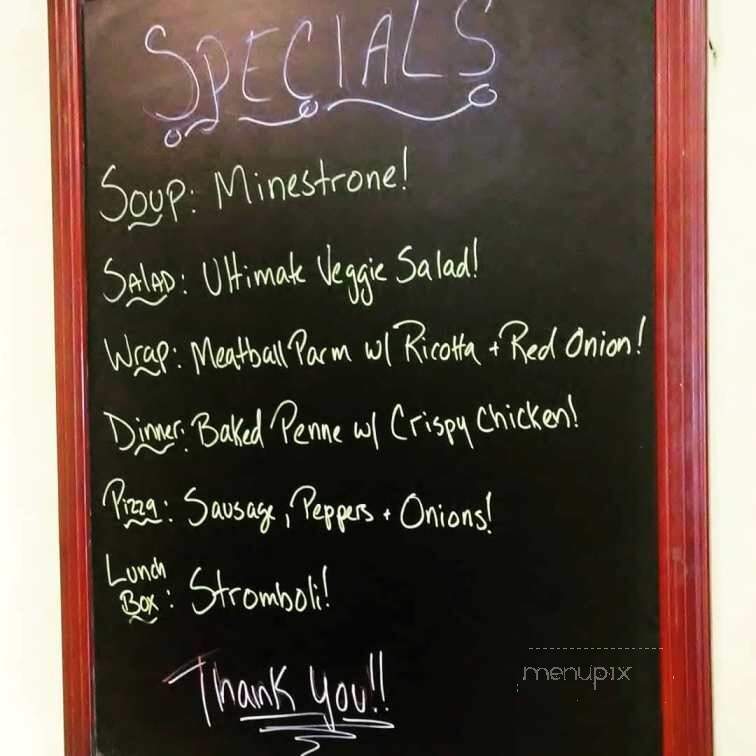 SPECIALS
Soup: Minestrone!
SALAD: Ultimate Veggie Salad!
Wrap: Meatball Parm w/ Ricotta + Red Onion!
Dinner: Baked Penne w/ Crispy Chicken!
Pizza: Sausage, Peppers + Onions!
Lunch
Box: Stromboli!
Thank you!!
menupix